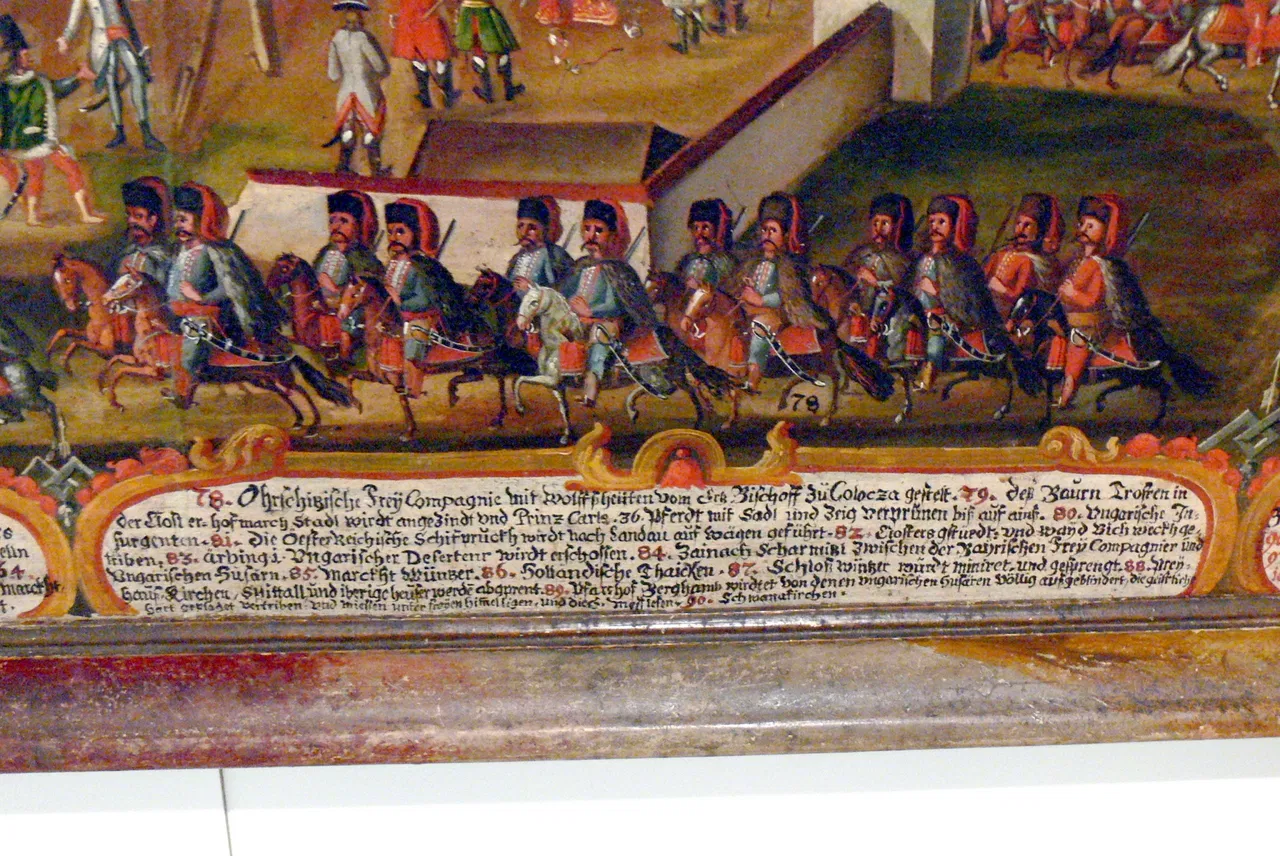 78
78. Ohrichizische Frey Compagnie mit Wolffsheütten vom Erk Bischoff zü Colocza gestelt. 79. deß Baurn Trosten in
der Clost er-hofmarch Stadl wirdt angezindt vnd Prinz Carls. 36. Pferdt mit Sadl und Zeig verprünen biß auf ainß. 80. Vngarische In-
surgenten. 81. die OesterReichische Schifbruckh wirdt nach Landau auf wägen geführt. 82. Closters vnd Bich weckh ge-
triben, 83. Vngarischer Deserteur wirdt erschossen. 84. Scharmizl zwischen der Bayrischen Frey Compagnier und
Vngarischen Husärn. 85. Marckht Winzer. 86. Hollandische 87. Schloß winzer wurdt miniret. und gesprengt. 88. Wey-
haus. Kirchen, Stittall und iberige heüser abgprent. 89. Pfarhof Berghamb wirdtet von denen vngarischen Husaren völlig außgeblindert, die geistliche
hart vertriben. und unter freyen himel ligen, und dies. Mess lesen. 90. Schwanakirchen.
64.
marckht